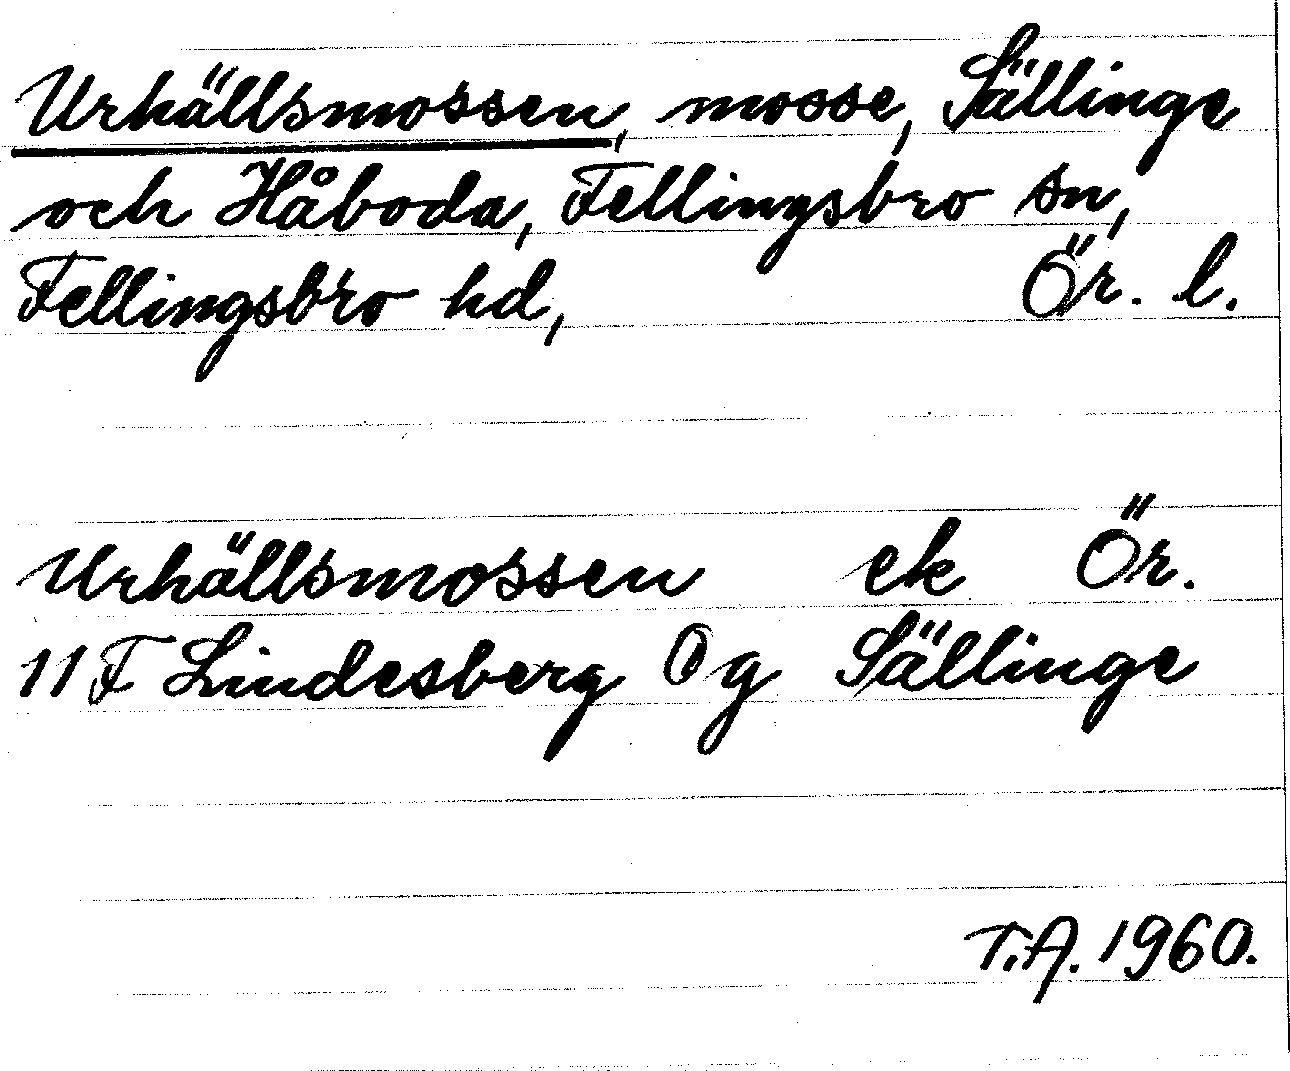 Urhällsmossen, mosse, Sällinge
och Håboda, Fellingsbro sn,
Fellingsbro hd, Ör. l.
Urhällsmossen ek Ör.
11F Lindesberg 0g Sällinge
T.A. 1960.